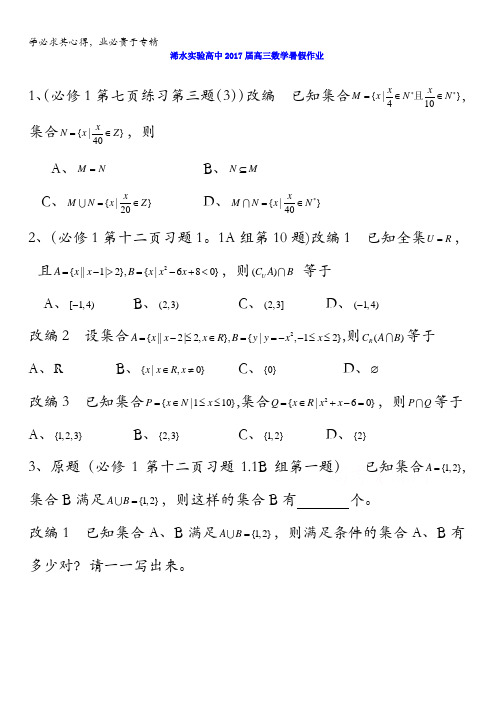 学必求其心得，业必贵于专精
浠水实验高中2017届高三数学暑假作业
1、(必修1第七页练习第三题(3))改编 已知集合M={x|x/4∈N*且x/10∈N*},
集合N={x|x/40∈Z}，则
A、M=N B、N⊆M
C、M∪N={x|x/20∈Z} D、M∩N={x|x/40∈N*}
2、(必修1第十二页习题1。1A组第10题)改编1 已知全集U=R，
且A={x||x-1|>2},B={x|x²-6x+8<0}，则(C_U A)∩B 等于
A、[-1,4) B、(2,3) C、(2,3] D、(-1,4)
改编2 设集合A={x||x-2|≤2,x∈R},B={y|y=-x²,-1≤x≤2},则C_R(A∩B)等于
A、R B、{x|x∈R,x≠0} C、{0} D、∅
改编3 已知集合P={x∈N|1≤x≤10},集合Q={x∈R|x²+x-6=0}，则P∩Q等于
A、{1,2,3} B、{2,3} C、{1,2} D、{2}
3、原题(必修1第十二页习题1.1B组第一题) 已知集合A={1,2}，
集合B满足A∪B={1,2}，则这样的集合B有 个。
改编1 已知集合A、B满足A∪B={1,2}，则满足条件的集合A、B有
多少对？请一一写出来。